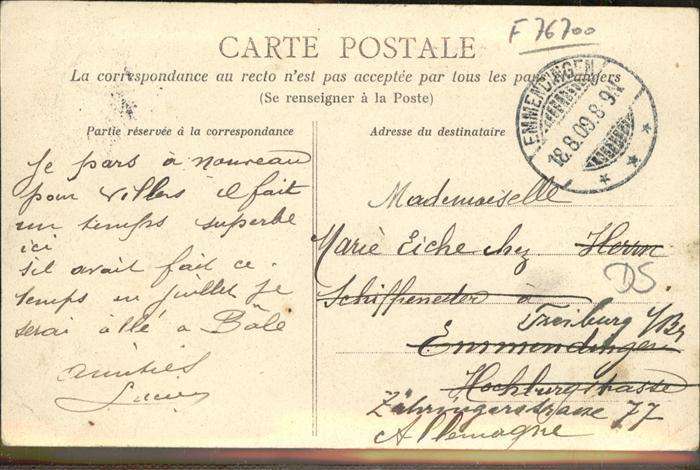 F 76700
CARTE POSTALE
La correspondance au recto n'est pas acceptée par tous les pays étrangers
(Se renseigner à la Poste)
EMMENDINGEN
18.8.09.8-9V
Partie réservée à la correspondance
Adresse du destinataire
Je pars à nouveau
pour Villers il fait
un temps superbe
ici
s'il avait fait ce
temps en juillet je
serai allé à Bâle
amitiés
Mademoiselle
Marie Eiche chez Herrn
DS
Schiffeneder à
Freiburg i/Br
Emmendingen
Hochburgstrasse
Zähringerstrasse 77
Allemagne